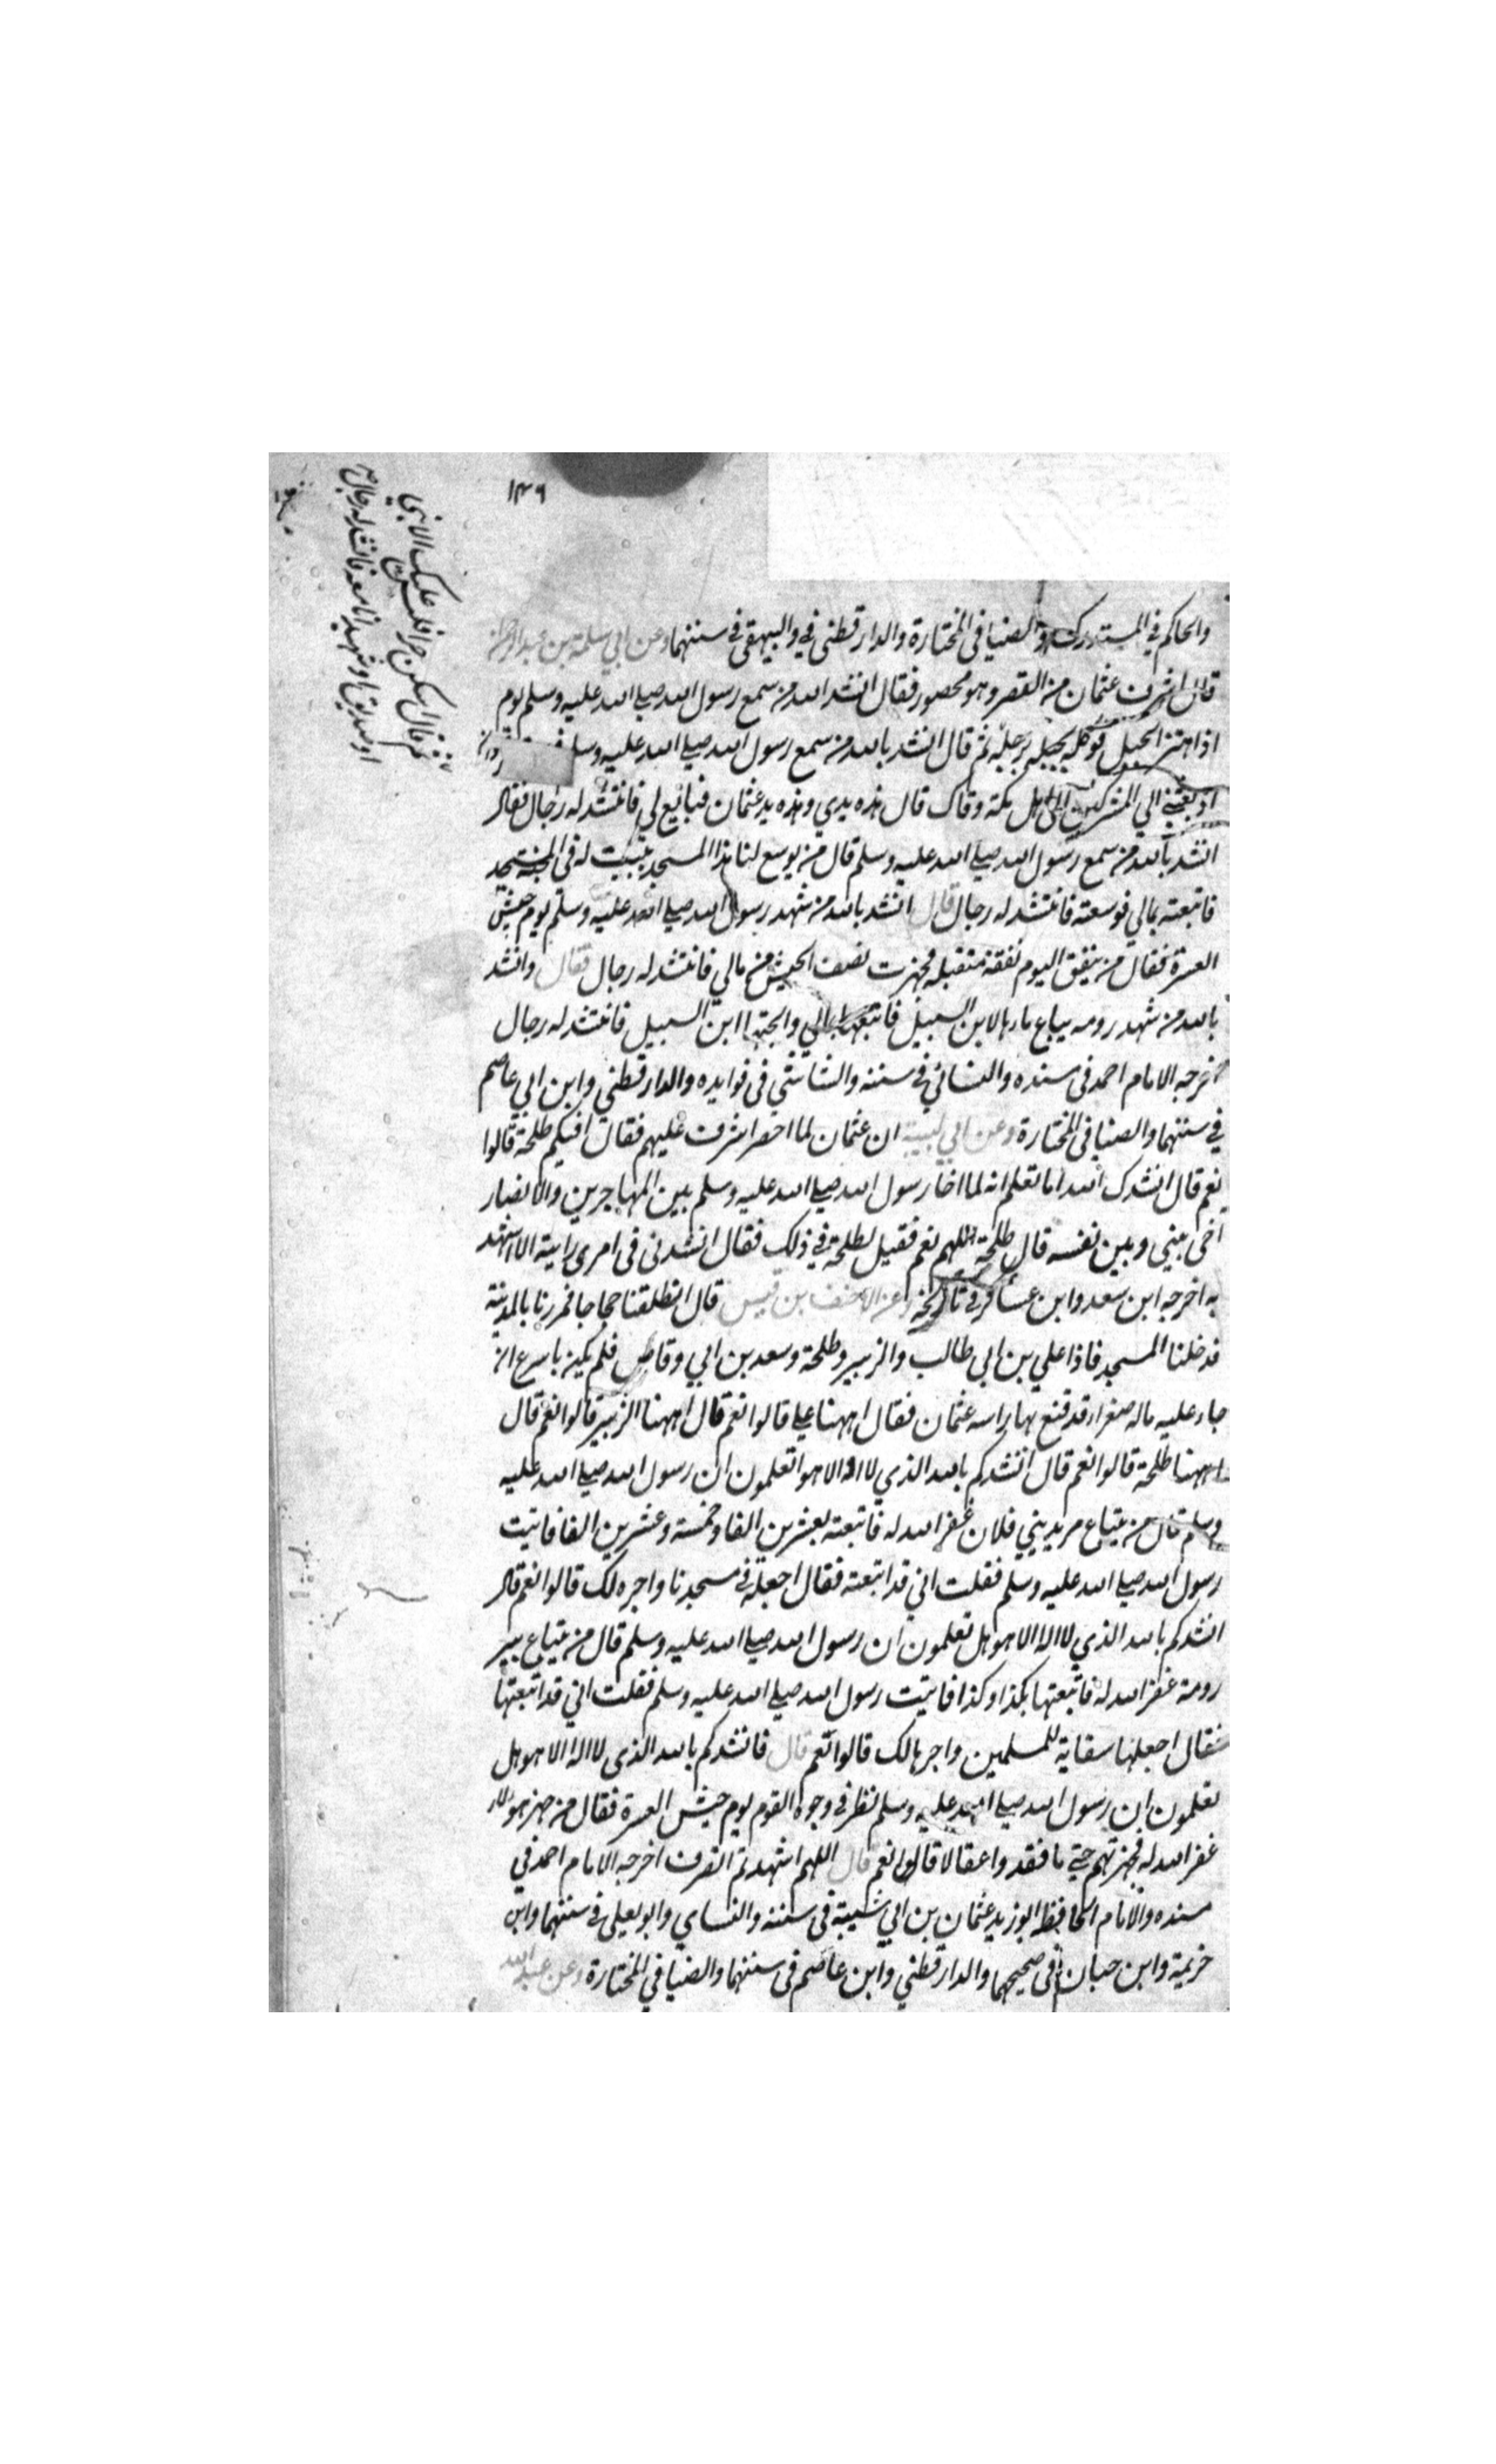 ١٣٦
والحاكم في المستدرك والضيا في المختارة والدارقطني في والبيهقي في سننهما وعن ابي سلمة بن عبد الرحمن
قال اشرف عثمان من القصر وهو محصور فقال انشد الله من سمع رسول الله صلى الله عليه وسلم يوم
اذا اهتز الجبل فوكله برجله ثم قال انشد بالله من سمع رسول الله صلى الله عليه وسلم
اذ بعثني الي المشركين الى اهل مكة وقال قال هذه يدي وهذه يد عثمان فبايع لي فانتشد له رجال فقال
انشد بالله من سمع رسول الله صلى الله عليه وسلم قال من يوسع لنا هذا المسجد ببيت له في الجنة
فابتعته بمالي فوسعته فانتشد له رجال قال انشد بالله من شهد رسول الله صلى الله عليه وسلم يوم جيش
العسرة فقال من ينفق اليوم نفقة متقبلة فجهزت نصف الجيش من مالي فانتشد له رجال فقال وانشد
بالله من شهد رومه يباع ماءها لابن السبيل فابتعتها بمالي وابحتها ابن السبيل فانتشد له رجال
خرجه الامام احمد في مسنده والنسائي في سننه والشاشي في فوايده والدارقطني وابن ابي عاصم
في سننهما والضيا في المختارة وعن ابي لبيبة ان عثمان لما احصر اشرف عليهم فقال افيكم طلحة قالوا
نعم قال انشدك الله اما تعلم انه لما اخا رسول الله صلى الله عليه وسلم بين المهاجرين والانصار
اخى بيني وبين نفسه قال طلحة اللهم نعم فقيل لطلحة في ذلك فقال انشدني في امرى رايته الا اشهد
به اخرجه ابن سعد وابن عساكر في تاريخه وعن الاحنف بن قيس قال انطلقنا حجاجا فمررنا بالمدينة
فدخلنا المسجد فاذا علي بن ابي طالب والزبير وطلحة وسعد بن ابي وقاص فلم يكن باسرع ان
جاء عليه ماله صفراء قد قنع بها راسه عثمان فقال اههنا علي قالوا نعم قال اههنا الزبير قالوا نعم قال
اههنا طلحة قالوا نعم قال انشدكم بالله الذي لا اله الا هو اتعلمون ان رسول الله صلى الله عليه
وسلم قال من يبتاع مربد بني فلان غفر الله له فابتعته بعشرين الفا وخمسة وعشرين الفا فاتيت
رسول الله صلى الله عليه وسلم فقلت اني قد ابتعته فقال اجعله في مسجدنا واجره لك قالوا نعم قال
انشدكم بالله الذي لا اله الا هو هل تعلمون ان رسول الله صلى الله عليه وسلم قال من يبتاع بير
رومة غفر الله له فابتعتها بكذا وكذا فاتيت رسول الله صلى الله عليه وسلم فقلت اني قد ابتعتها
فقال اجعلها سقاية للمسلمين واجرها لك قالوا نعم قال فانشدكم بالله الذي لا اله الا هو هل
تعلمون ان رسول الله صلى الله عليه وسلم نظر في وجوه القوم يوم جيش العسرة فقال من جهز هولاء
غفر الله له فجهزتهم حتى ما فقدوا عقالا قالوا نعم قال اللهم اشهد ثم انصرف اخرجه الامام احمد في
مسنده والامام الحافظ ابو زيد عثمان بن ابي شيبة في سننه والنسايي وابو يعلى في سننهما وابن
خزيمة وابن حبان في صحيحهما والدارقطني وابن عاصم في سننهما والضيا في المختارة وعن عبد الله
فقال اسكن حرا فليس عليك الا نبي
او صديق او شهيد انا معه فانتشد له رجال